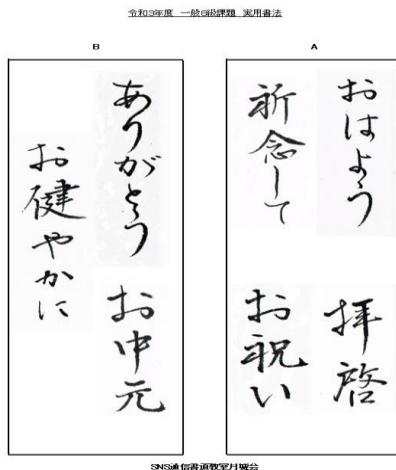 令和3年度 一般8級課題 実用書法
A
おはよう
拝啓
祈念して
お祝い
B
ありがとう
お中元
お健やかに
SNS通信書道教室月曜会